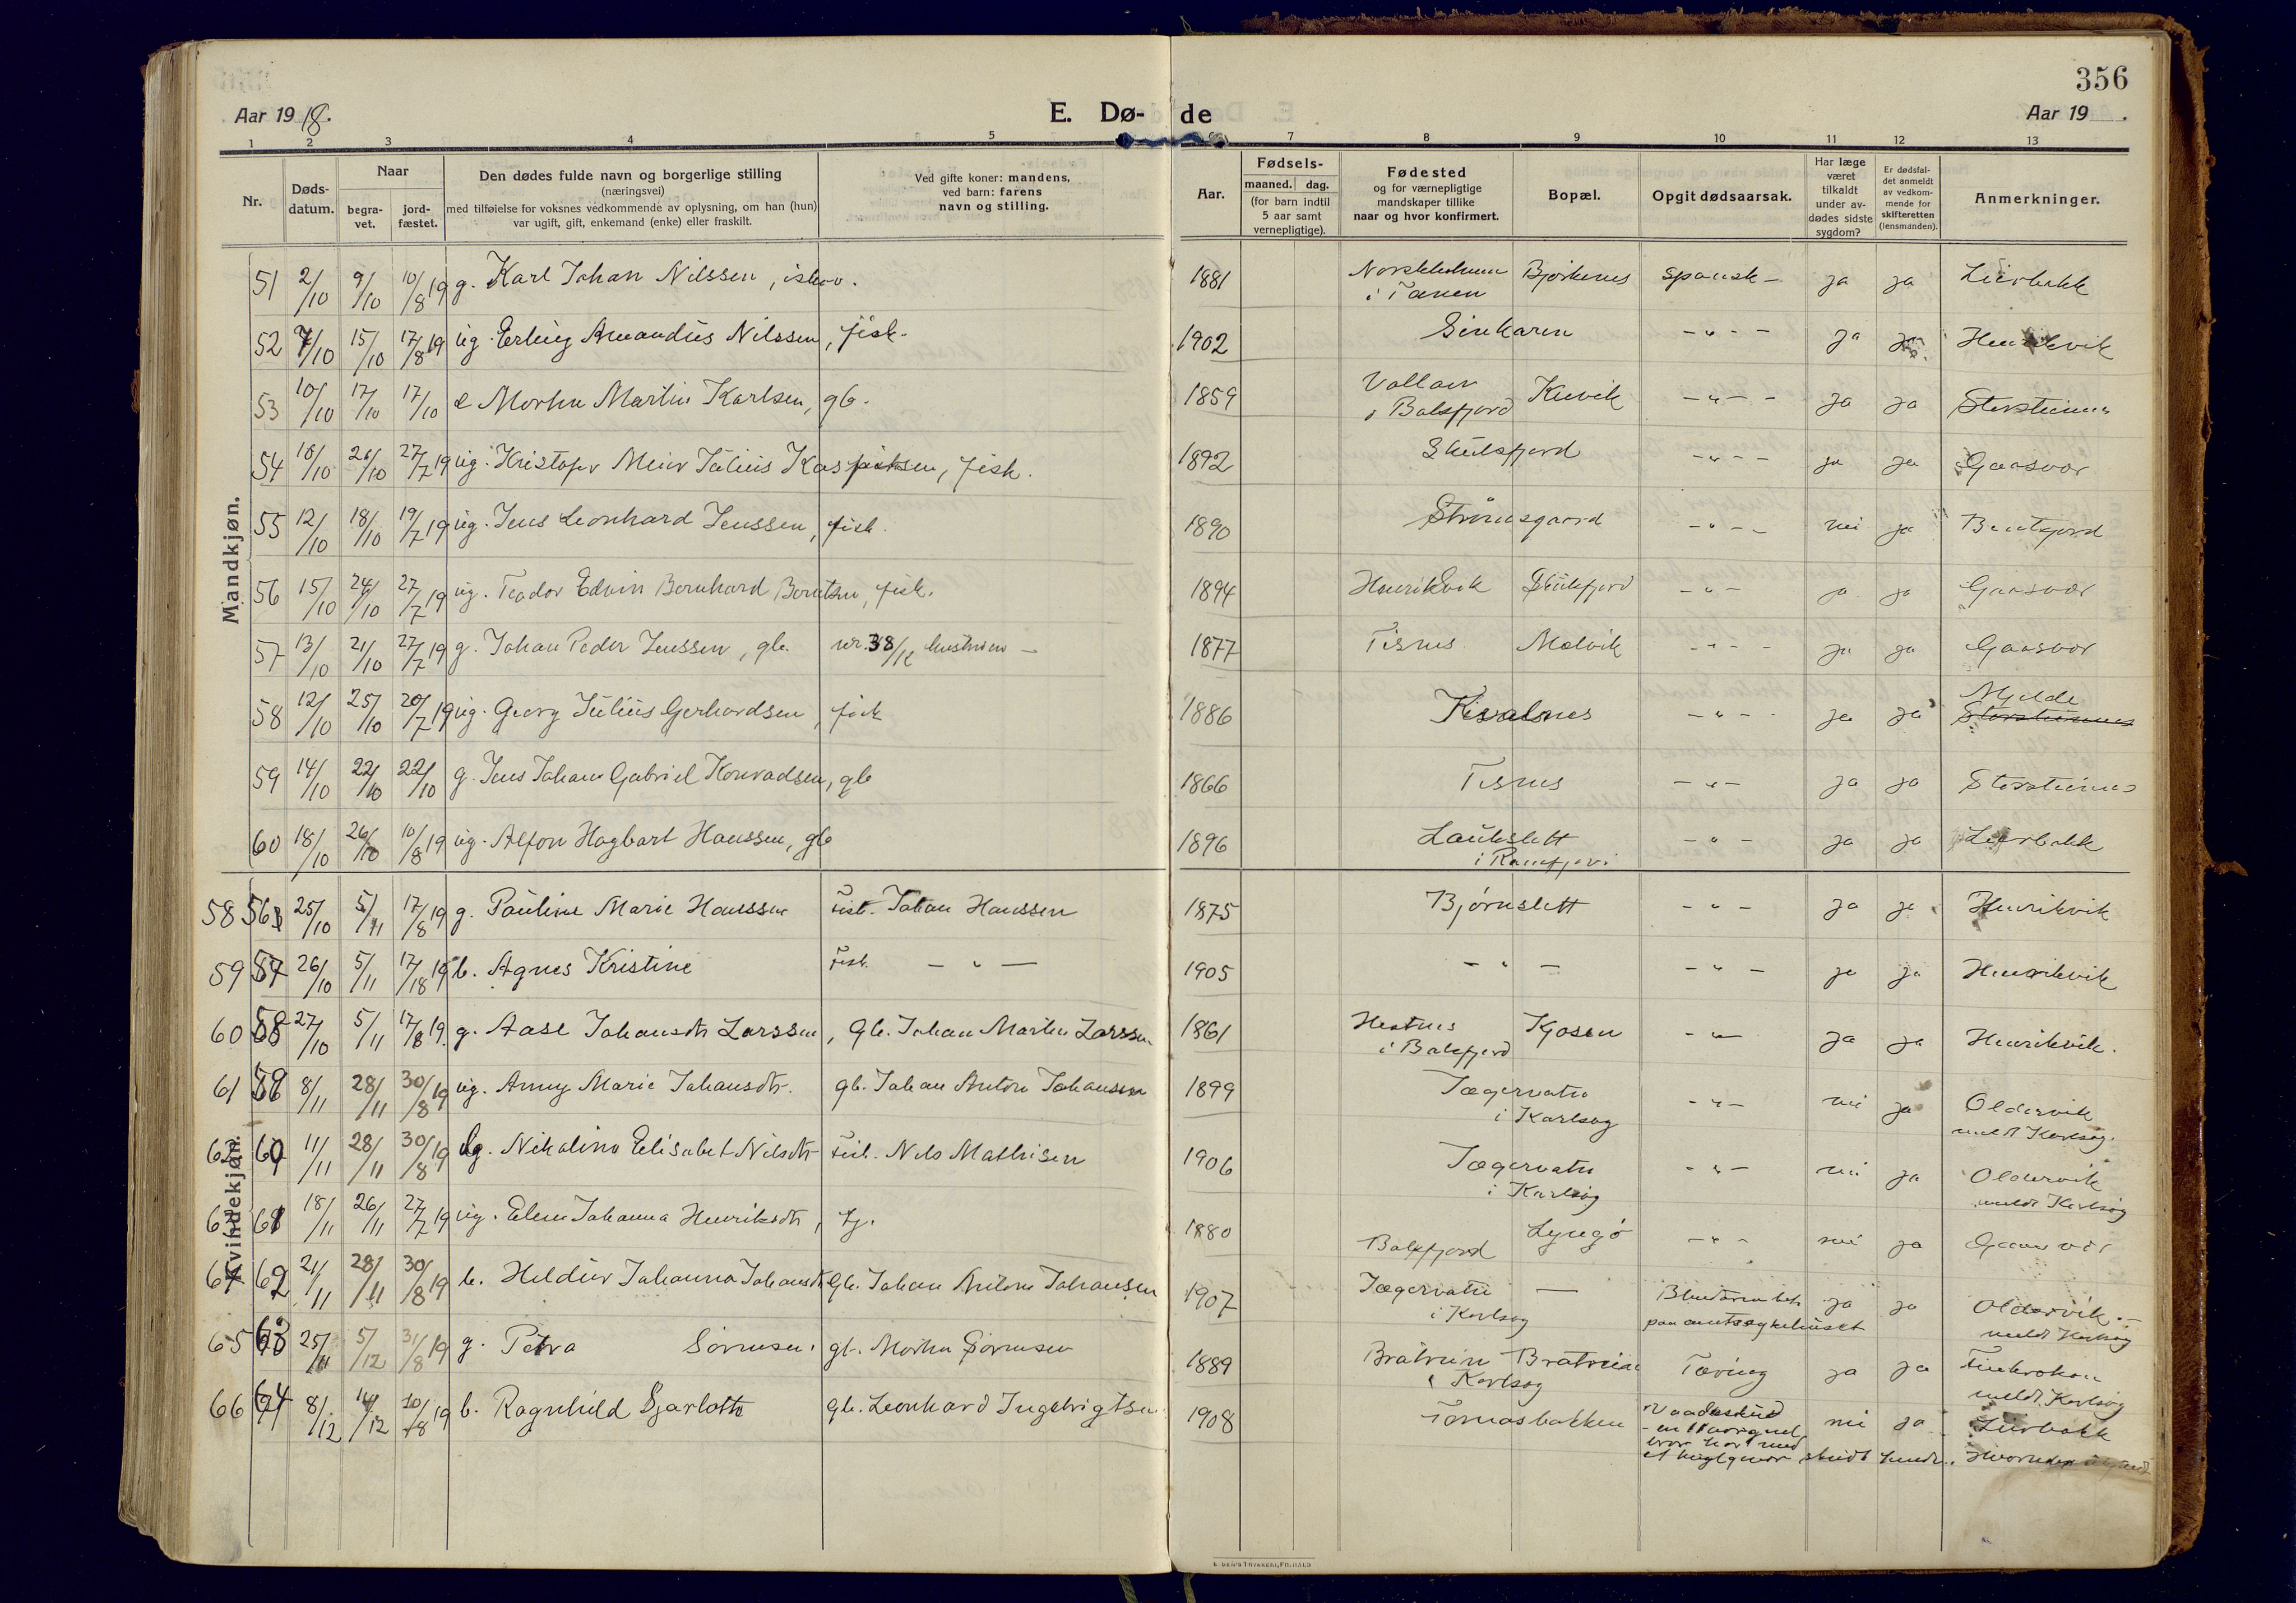 356
Aar 1918.
E. Dø- de
Aar 19
1 2 3 4 5 6 7 8 9 10 11 12 13
Nr.
Døds-
datum.
Naar
begra-
vet.
jord-
fæstet.
Den dødes fulde navn og borgerlige stilling
(næringsvei)
med tilføielse for voksnes vedkommende av oplysning, om han (hun)
var ugift, gift, enkemand (enke) eller fraskilt.
Ved gifte koner: mandens,
ved barn: farens
navn og stilling.
Aar.
Fødsels-
maaned. dag.
(for barn indtil
5 aar samt
vernepligtige).
Fødested
og for værnepligtige
mandskaper tillike
naar og hvor konfirmert.
Bopæl.
Opgit dødsaarsak.
Har læge
været
tilkaldt
under av-
dødes sidste
sygdom?
Er dødsfal-
det anmeldt
av vedkom-
mende for
skifteretten
(lensmanden).
Anmerkninger.
Mandkjøn.
51 2/10 9/10 10/8 19 g. Karl Johan Nilssen, 1881 i Tanen Bjørkenes spansk - ja ja Lierbakk
52 7/10 15/10 17/8 19 ug. Erling Amandus Nilssen, fisk. 1902 - " - - ja ja Henrikvik
53 10/10 17/10 17/10 e Morten Martin Karlsen, gb. 1859 i Balsfjord - " - - ja ja Storsteinnes
54 18/10 26/10 27/7 19 ug. Kristofer Meier Julius Kaspersen, fisk. 1892 Skulsfjord - " - - ja ja Gaasvær
55 12/10 18/10 19/7 19 ug. Jens Leonhard Jenssen, fisk. 1890 Strømsgaard - " - - nei ja Bentsjord
56 15/10 24/10 27/7 19 ug. Teodor Edvin Bernhard Berntsen, fisk. 1894 Henrikvik Skulsfjord - " - ja ja Gaasvær
57 13/10 21/10 27/7 19 g. Johan Peder Jenssen, gb. nr. 38/12 hustruen - 1877 Tisnes Mælvik - " - - ja ja Gaasvær
58 12/10 25/10 20/7 19 ug. Georg Julius Gerhardsen, fisk 1886 Kvalnes - " - - ja ja Mjelde Storsteinnes
59 14/10 22/10 22/10 g. Jens Johan Gabriel Konradsen, gb 1866 Tisnes - " - ja ja Storsteinnes
60 18/10 26/10 10/8 19 ug. Alfon Hagbart Hanssen, gb 1896 Laukslett - " - ja ja Lierbakk
i Ramfjord
Kvindekjøn.
58 56 25/10 5/11 17/8 19 g. Pauline Marie Hanssen fisk. Johan Hanssen 1875 Bjørnslett - " - ja ja Henrikvik
59 57 26/10 5/11 17/8 19 b. Agnes Kristine fisk. - " - 1905 - " - - " - ja ja Henrikvik
60 58 27/10 5/11 17/8 19. g. Aase Johansdtr Larssen, gb. Johan Martin Larssen 1861 Hestnes i Balsfjord Kjosen - " - ja ja Henrikvik.
61 59 8/11 28/11 30/8 19 ug. Anny Marie Johansdtr. gb. Johan Anton Johansen 1899 Jægervatn i Karlsøy - " - nei ja Oldervik
meldt Karlsøy.
62 60 11/11 28/11 30/8 19 ug. Nikoline Elisabet Nilsdtr fisk. Nils Mathisen 1906 Jægervatn i Karlsøy - " - nei ja Oldervik
meldt Karlsøy
63 61 18/11 26/11 27/7 19 ug. Elen Johanna Henriksdtr, tj. 1880 Balsfjord Lyngø - " - nei ja Gaasvær
64 62 21/11 28/11 30/8 19 b. Heldur Johanna Johansdtr gb. Johan Anton Johansen 1907 Jægervatn i Karlsøy — Blindtarmbet.
paa amtssykehuset ja ja Oldervik. -
meldt Karlsøy
65 63 25/11 5/12 31/8 19 g. Petra Sørensen. gb. Morten Sørensen 1889 Bratrein i Karlsøy Bratrein Tæring ja ja Finkroken
meldt Karlsøy
66 64 8/12 14/12 10/8 19 b. Ragnhild Sjarlotte gb. Leonhard Ingebrigtsen 1908 Tomasbakken Vaadeskud
nei ja Lierbakk
- en 11 aar gml.
bror har med
et haglgevær skudt hende.